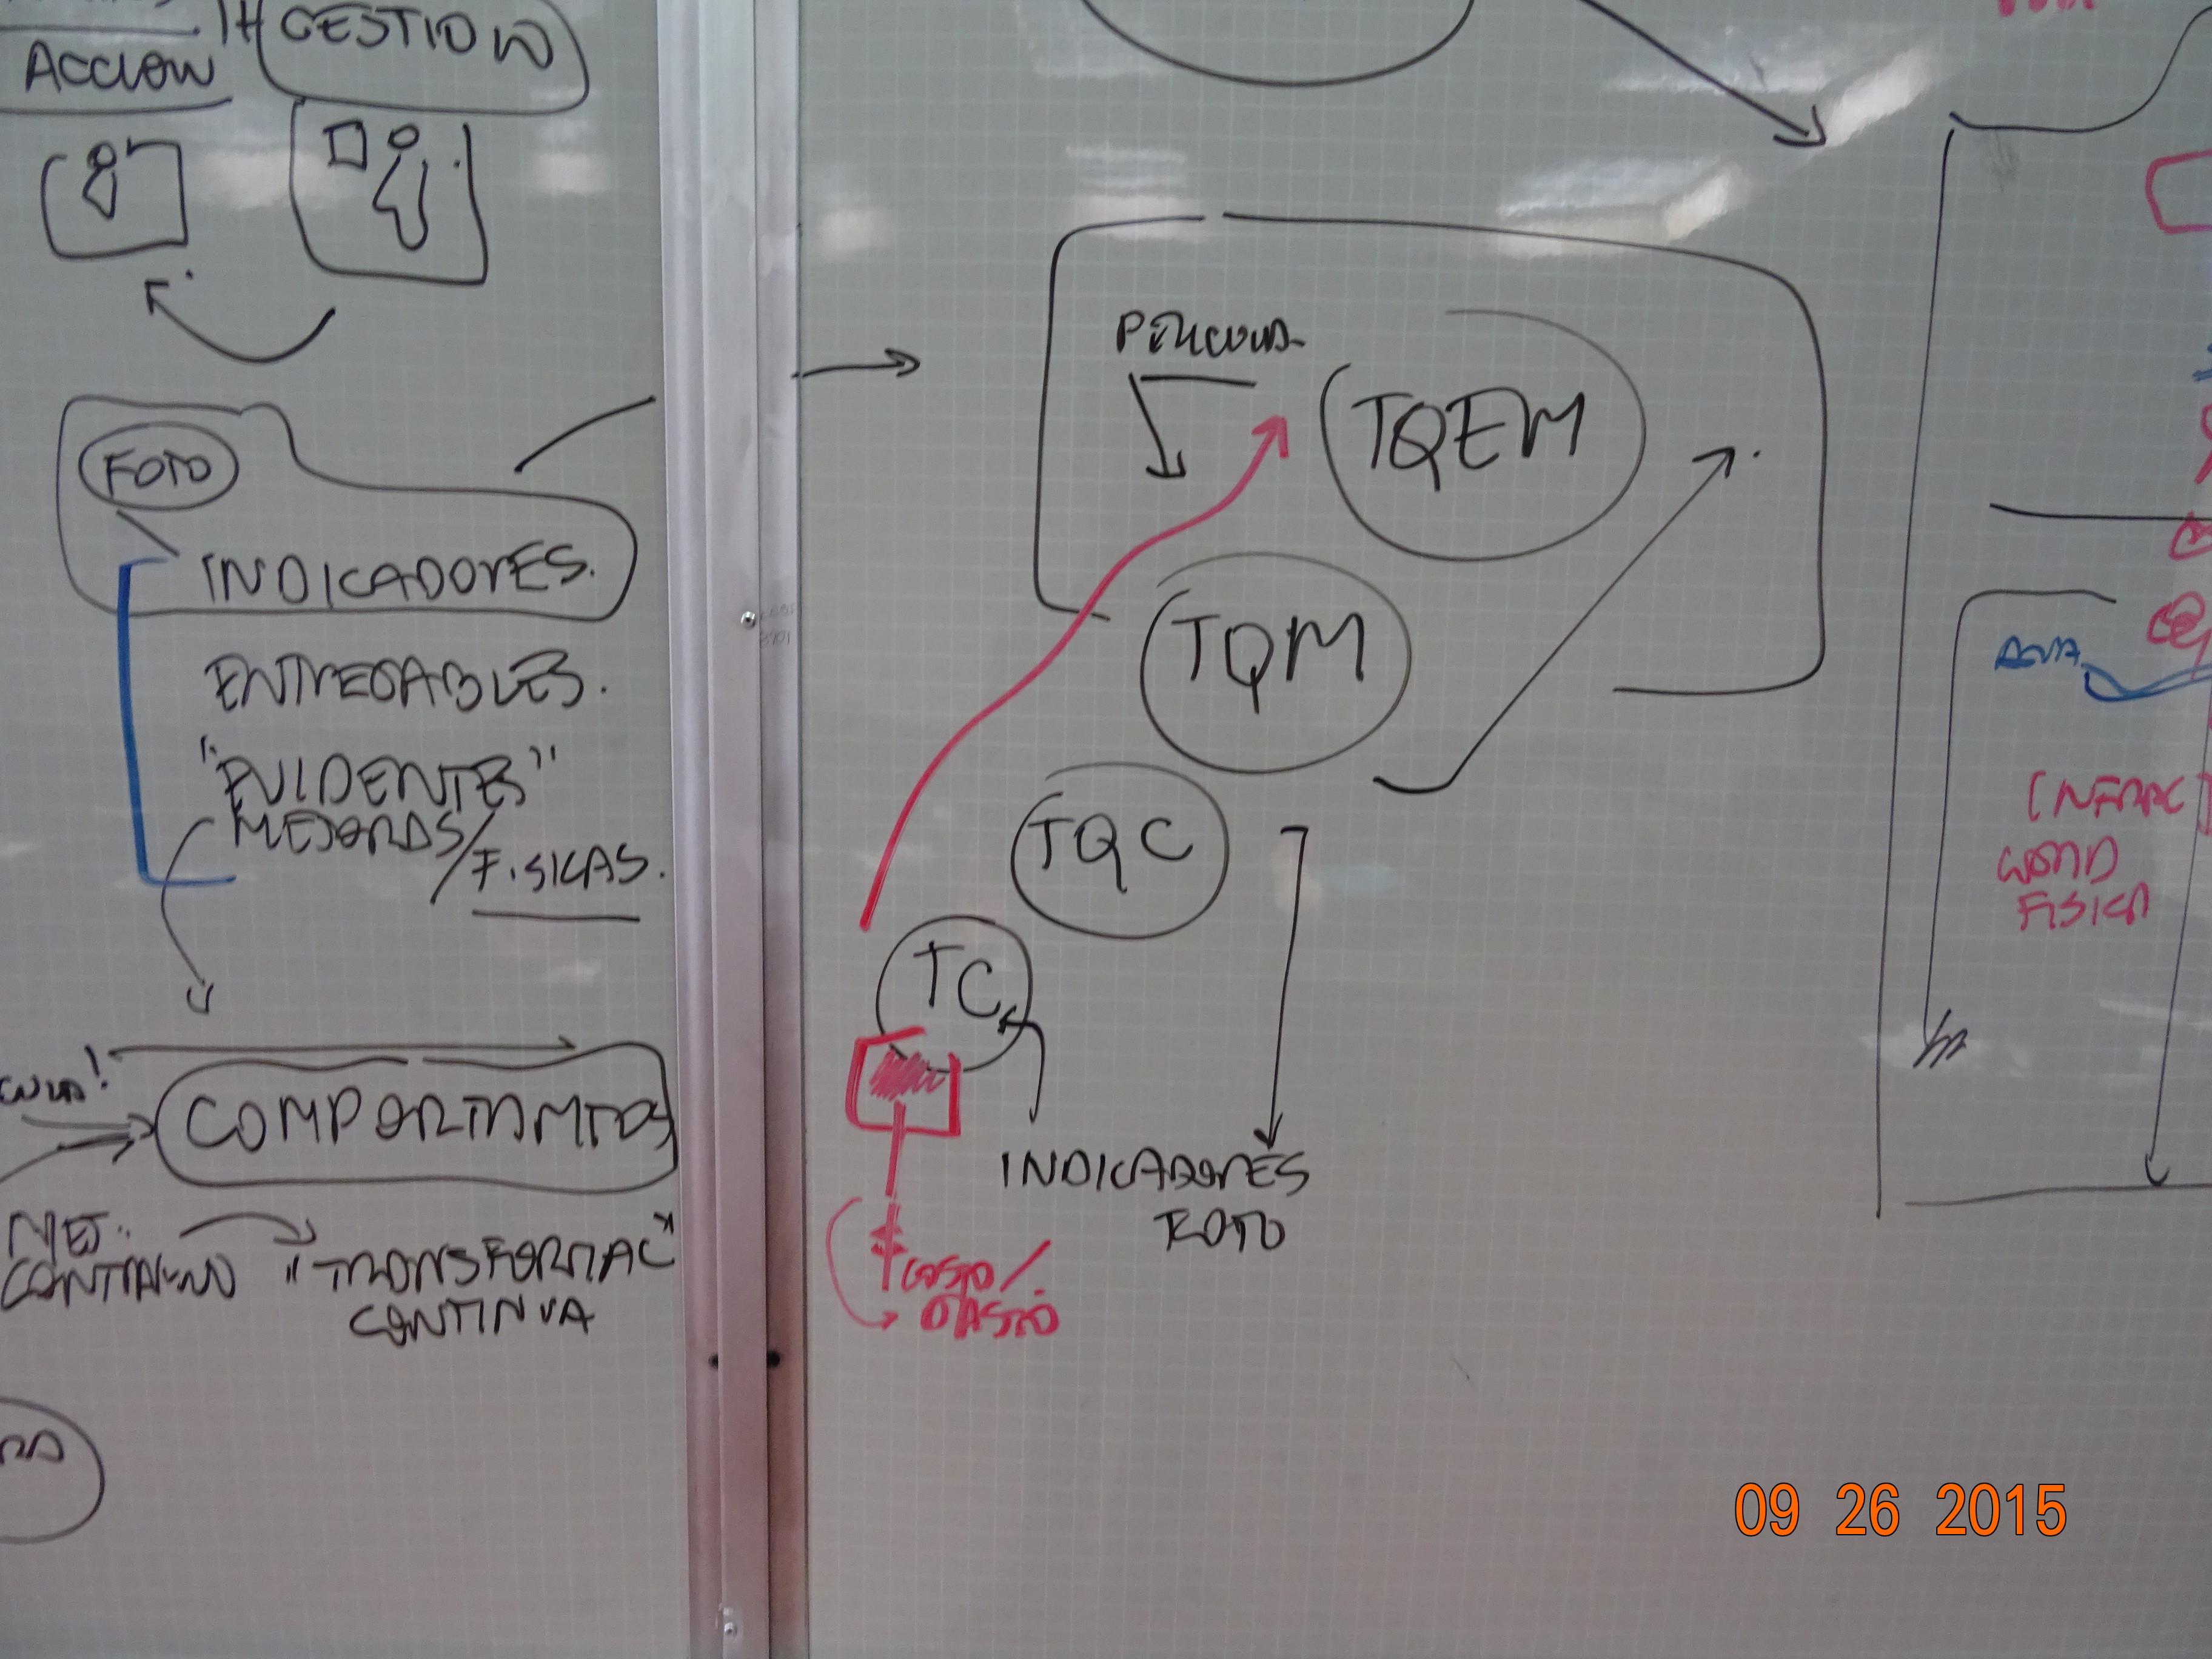 GESTION
ACCION
FOTO
INDICADORES.
ENTREGABLES.
"EVIDENTES"
MEJORAS/
FISICAS.
COMPORTAMTOS
MEJ.
CONTINUO
"TRANSFORMAC"
CONTINUA
TQEM
TQM
TQC
TC
INDICADORES
FOTO
COSTO/
GASTO
FISICA
09 26 2015